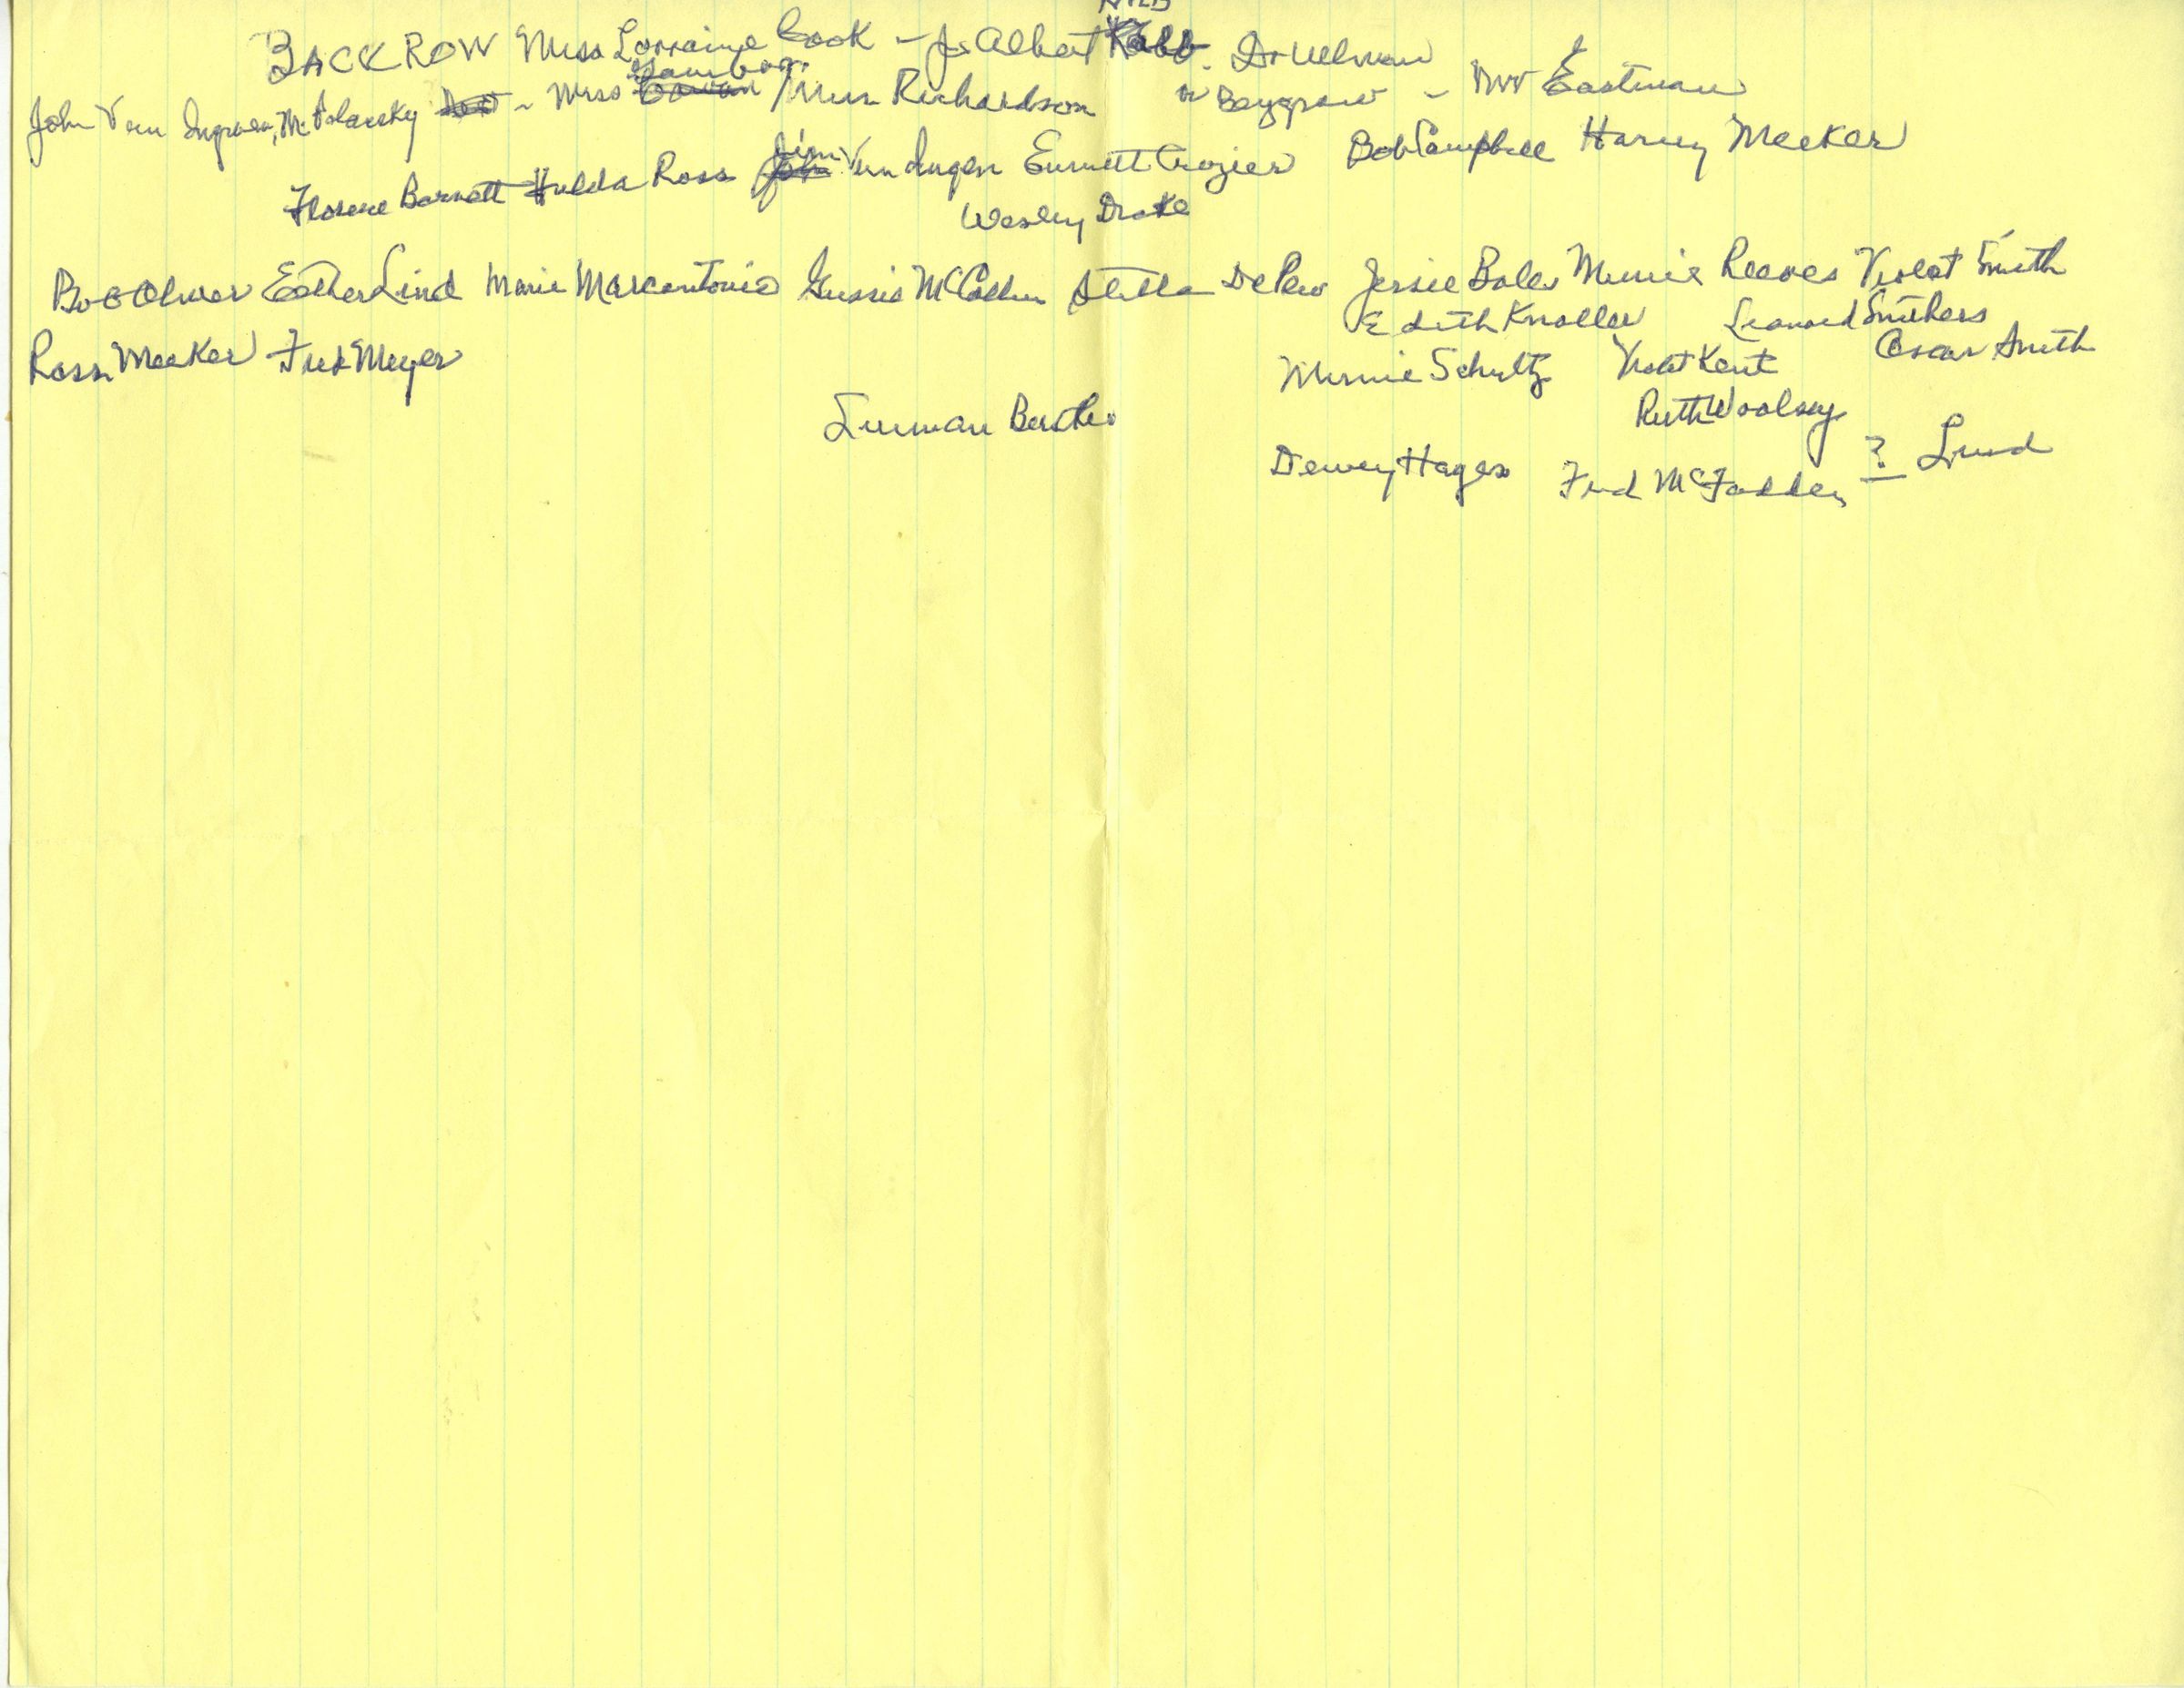 BACK ROW Miss Lorraine Cook - Js Albert Robb. Dr Ulman
John Van Ingraen, - Miss / Miss Richardson or Baygraw - Mr Eastman
Florence Barnett Hulda Ross Jim Van Ingen Emmett Crozier Bob Campbell Harvey Meeker
Wesley Drake
Bob Oliver Esther Lind Marie Marcantonio Gussie McCollum Stella DePew Jessie Boles Minnie Reeves Violet Smith
Edith Knoller Leonard Smithers
Ross Meeker Fred Meyer Minnie Schultz Violet Kent Oscar Smith
Ruth Woolsey
Dewey Hagen Fred McFadden ? Lund